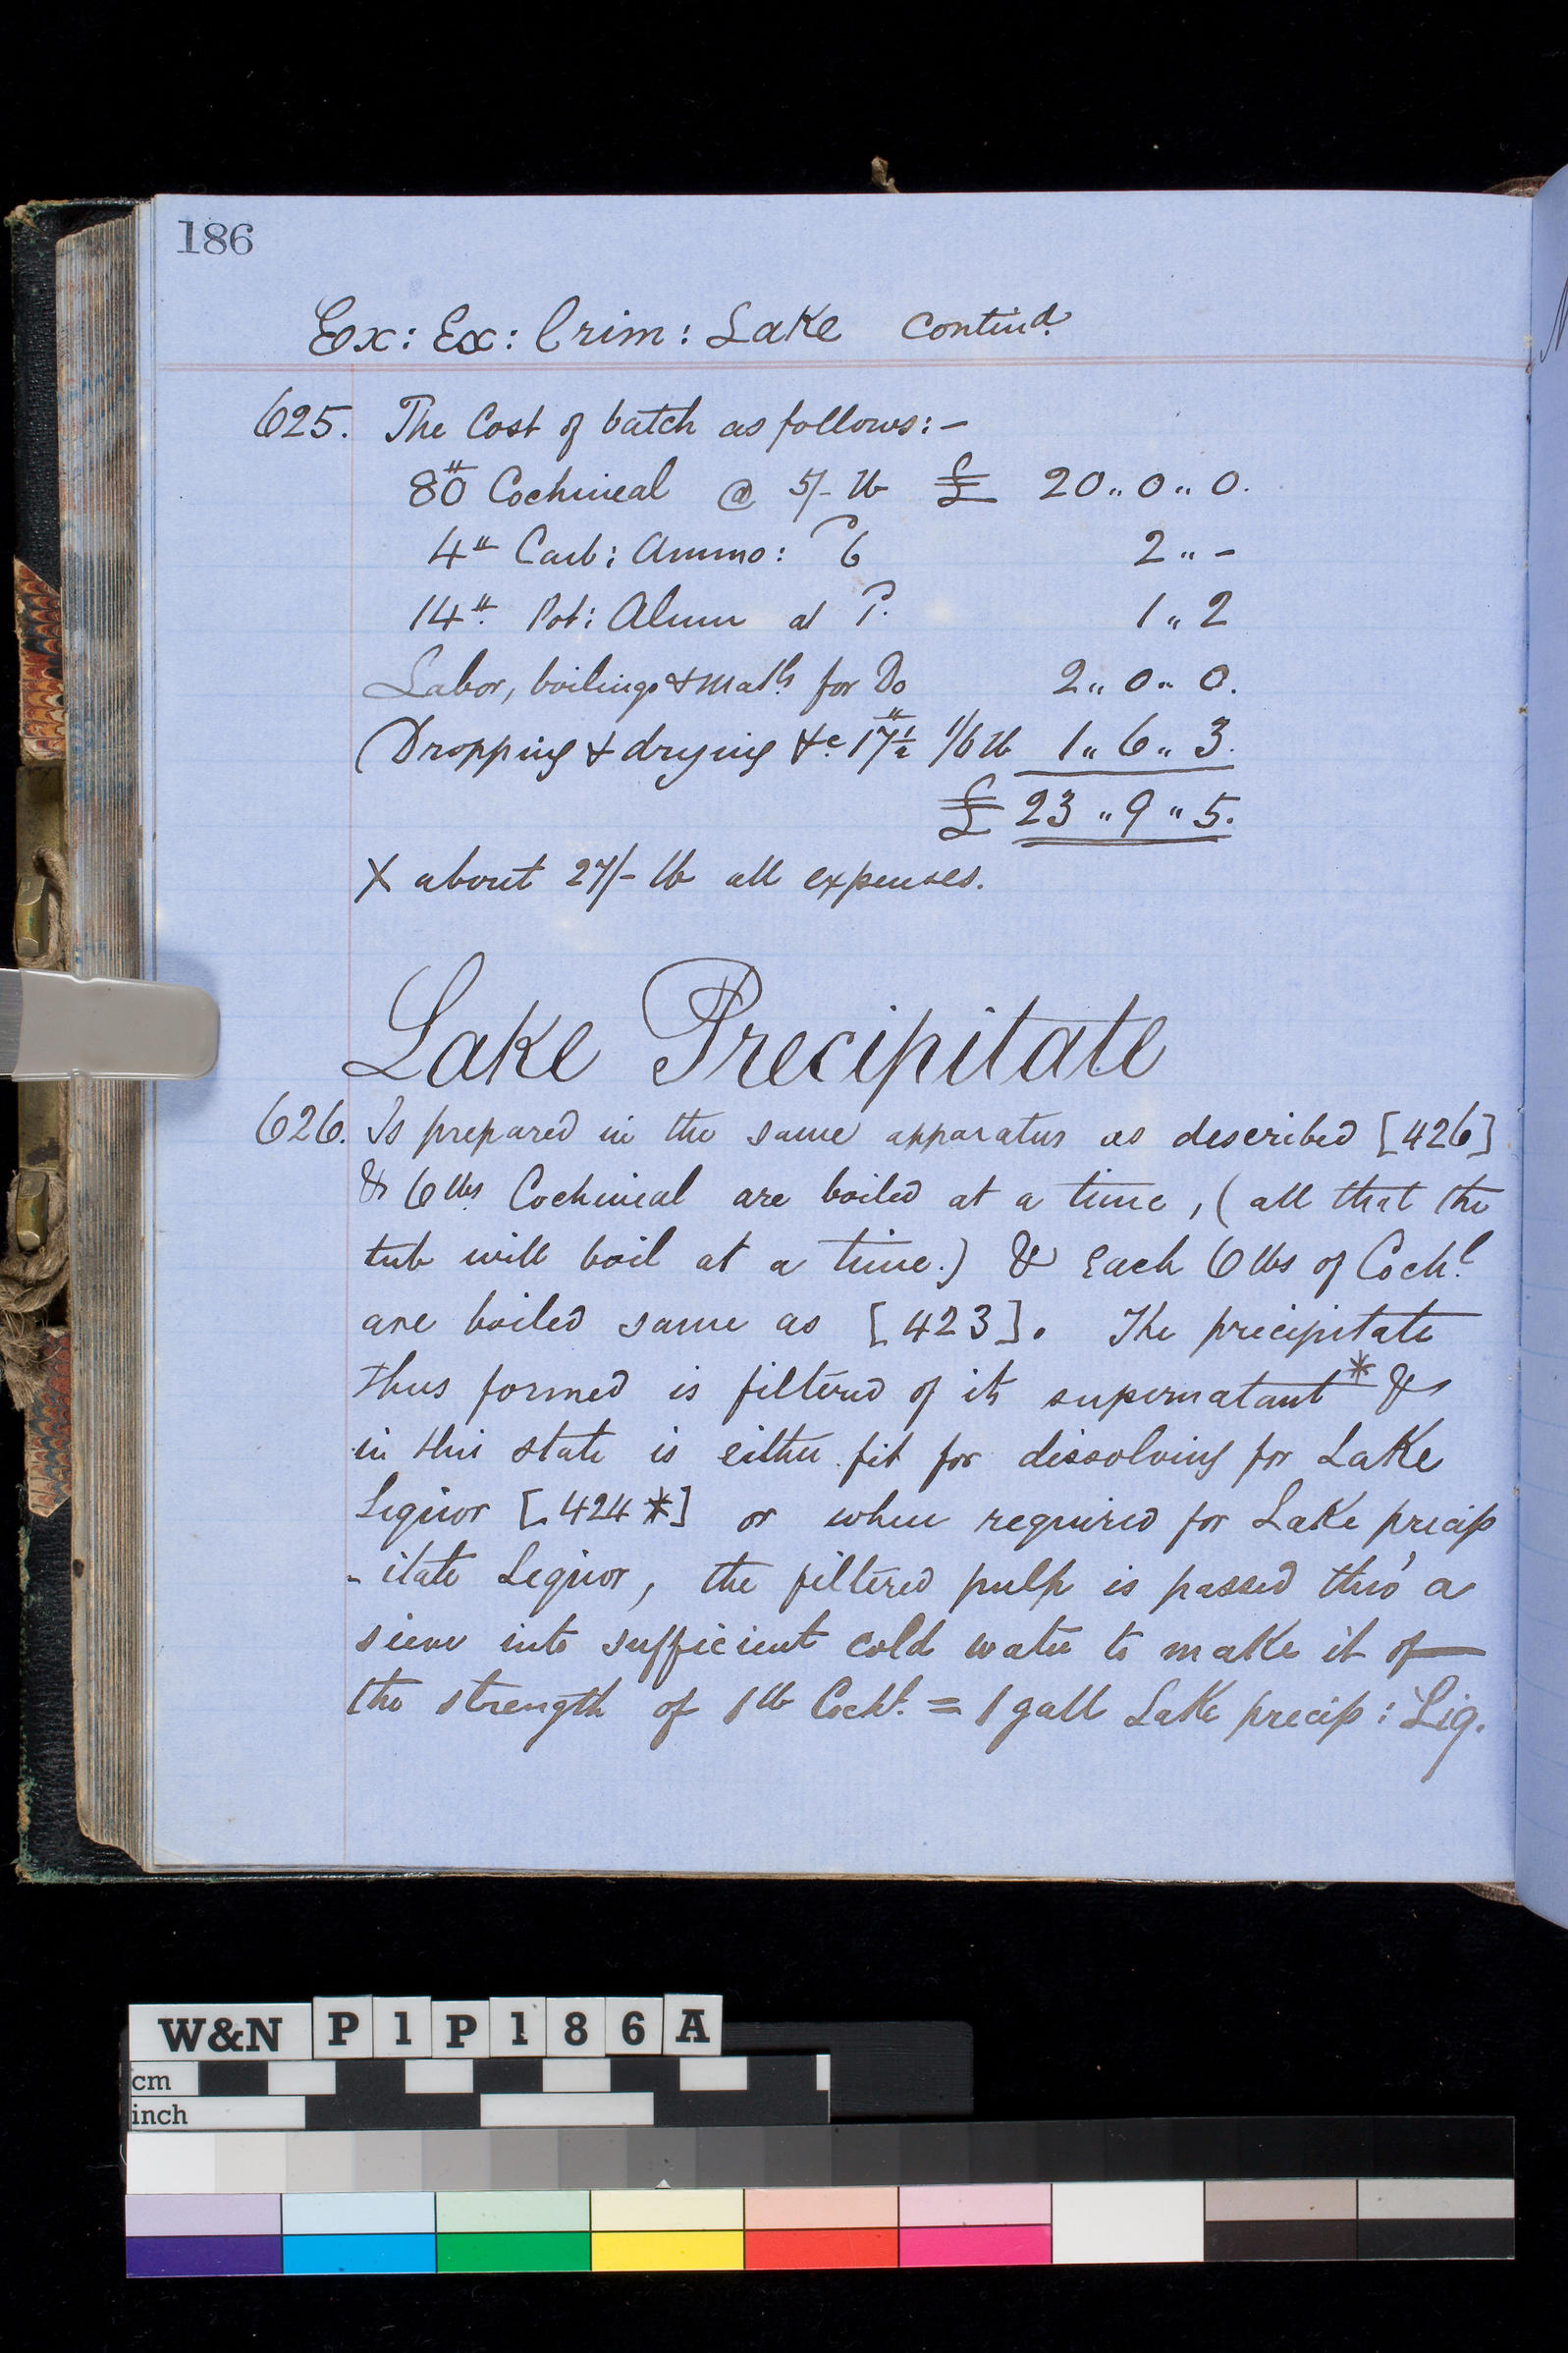 186
Ex: Ex: Crim: Lake Contin.d
625. The Cost of batch as follows:-
80# Cochineal @ 5/- lb £ 20 " 0 " 0.
4# Carb: Ammo: 6 2 " -
14# Pot: Alum at 1 " 2
Labor, boilings & matls for Do 2 " 0 " 0.
Dropping & drying &c 17½# 1/6 lb 1 " 6 " 3.
£ 23 " 9 " 5.
X about 27/- lb all expenses.
Lake Precipitate
626. Is prepared in the same apparatus as described [426]
& 6 lbs Cochineal are boiled at a time, (all that the
tub will boil at a time.) & Each 6 lbs of Coch.l
are boiled same as [423]. The precipitate
thus formed is filtered of its supernatant* &
in this state is either fit for dissolving for Lake
Liquor [424*] or when required for Lake precip
-itate Liquor, the filtered pulp is passed thro' a
sieve into sufficient cold water to make it of
the strength of 1 lb Cochl. = 1 gall Lake precip: Liq.
W&N P1P186A
cm
inch